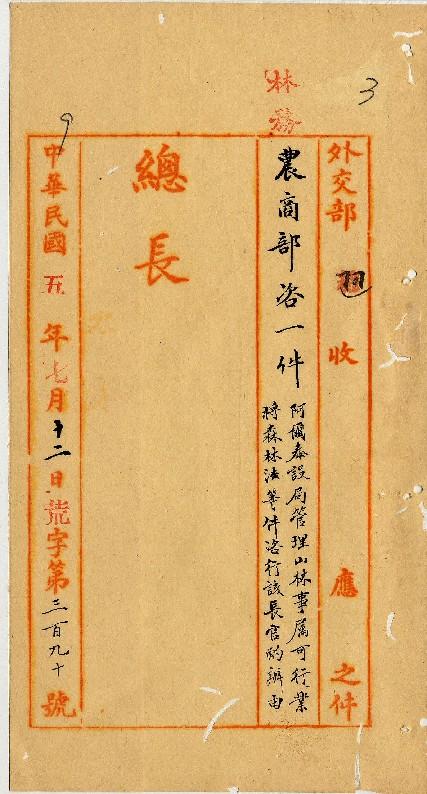 3
林務
外交部 收 應 之件
農商部咨一件
阿爾泰設局管理山林事屬可行業
將森林法等件咨行該長官酌辦由
總長
9
中華民國五年七月十二日荒字第三百九十號